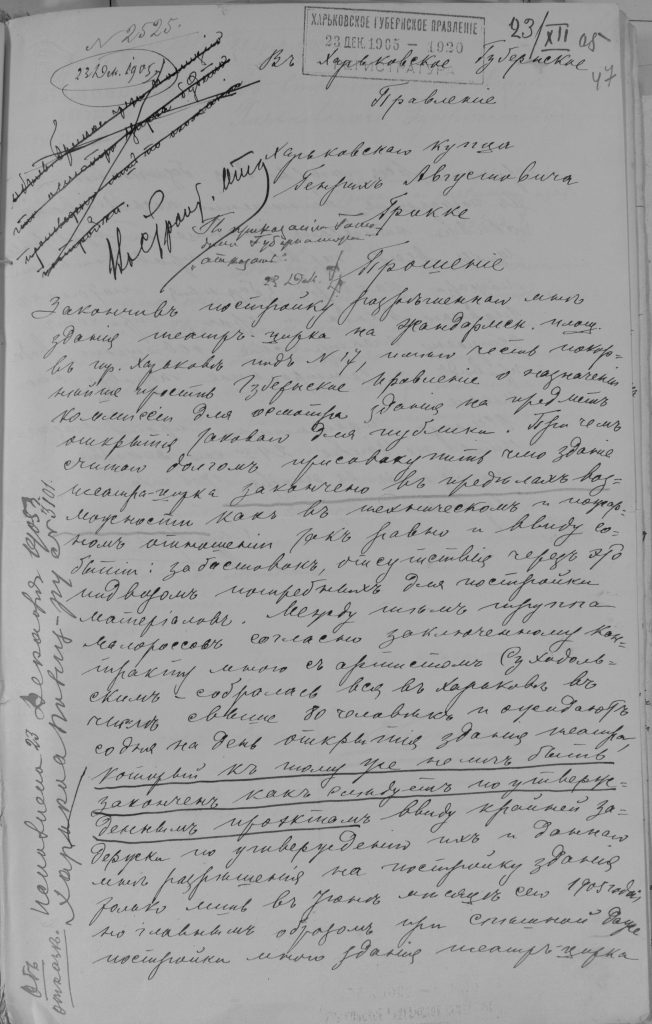 N 2525.
23 Дек. 1905 г.
ХАРЬКОВСКОЕ ГУБЕРНСКОЕ ПРАВЛЕНІЕ
23 ДЕК. 1905 - 1920
РЕГИСТРАТУРА
23/XII 05
47
Въ Харьковское Губернское
Правленіе
Харьковскаго купца
Генрихъ Августовича
Грикке
По приказанію Госпо
дина Губернатора
"отказать".
23 Дек.
Прошеніе
Закончивъ постройку разрѣшеннаго мнѣ
зданія театръ-цирка на Жандармск. площ.
въ гор. Харьковѣ подъ N 17, имѣю честь покор-
нѣйше просить Губернское Правленіе о назначеніи
коммиссіи для осмотра зданія на предметъ
открытія такового для публики. При чемъ
считаю долгомъ присовокупить что зданіе
театра-цирка закончено въ предѣлахъ воз-
можности какъ въ техническомъ и пожар-
номъ отношеніи такъ равно и ввиду со-
бытій: забастовокъ, отсутствія черезъ это
подвозомъ потребныхъ для постройки
матеріаловъ. Между тѣмъ труппа
малороссовъ согласно заключенному кон-
тракту мною съ артистомъ Суходоль-
скимъ - собралась вся въ Харьковъ въ
числѣ свыше 80 человѣкъ и ожидаютъ
со дня на день открытія зданія театра,
который къ тому же не могъ быть
законченъ какъ слѣдуетъ по утверж-
деннымъ проэктамъ ввиду крайней за-
держки по утвержденію ихъ и даннаго
мнѣ разрѣшенія на постройку зданія
только лишь въ Іюнѣ мѣсяцѣ сего 1905 года,
но главнымъ образомъ при спѣшной даже
постройки мною зданія театръ-цирка
Объ отказѣ
исполнено 23 Декабря 1905 г.
Харьков. Полиц-ру СТ 3101.